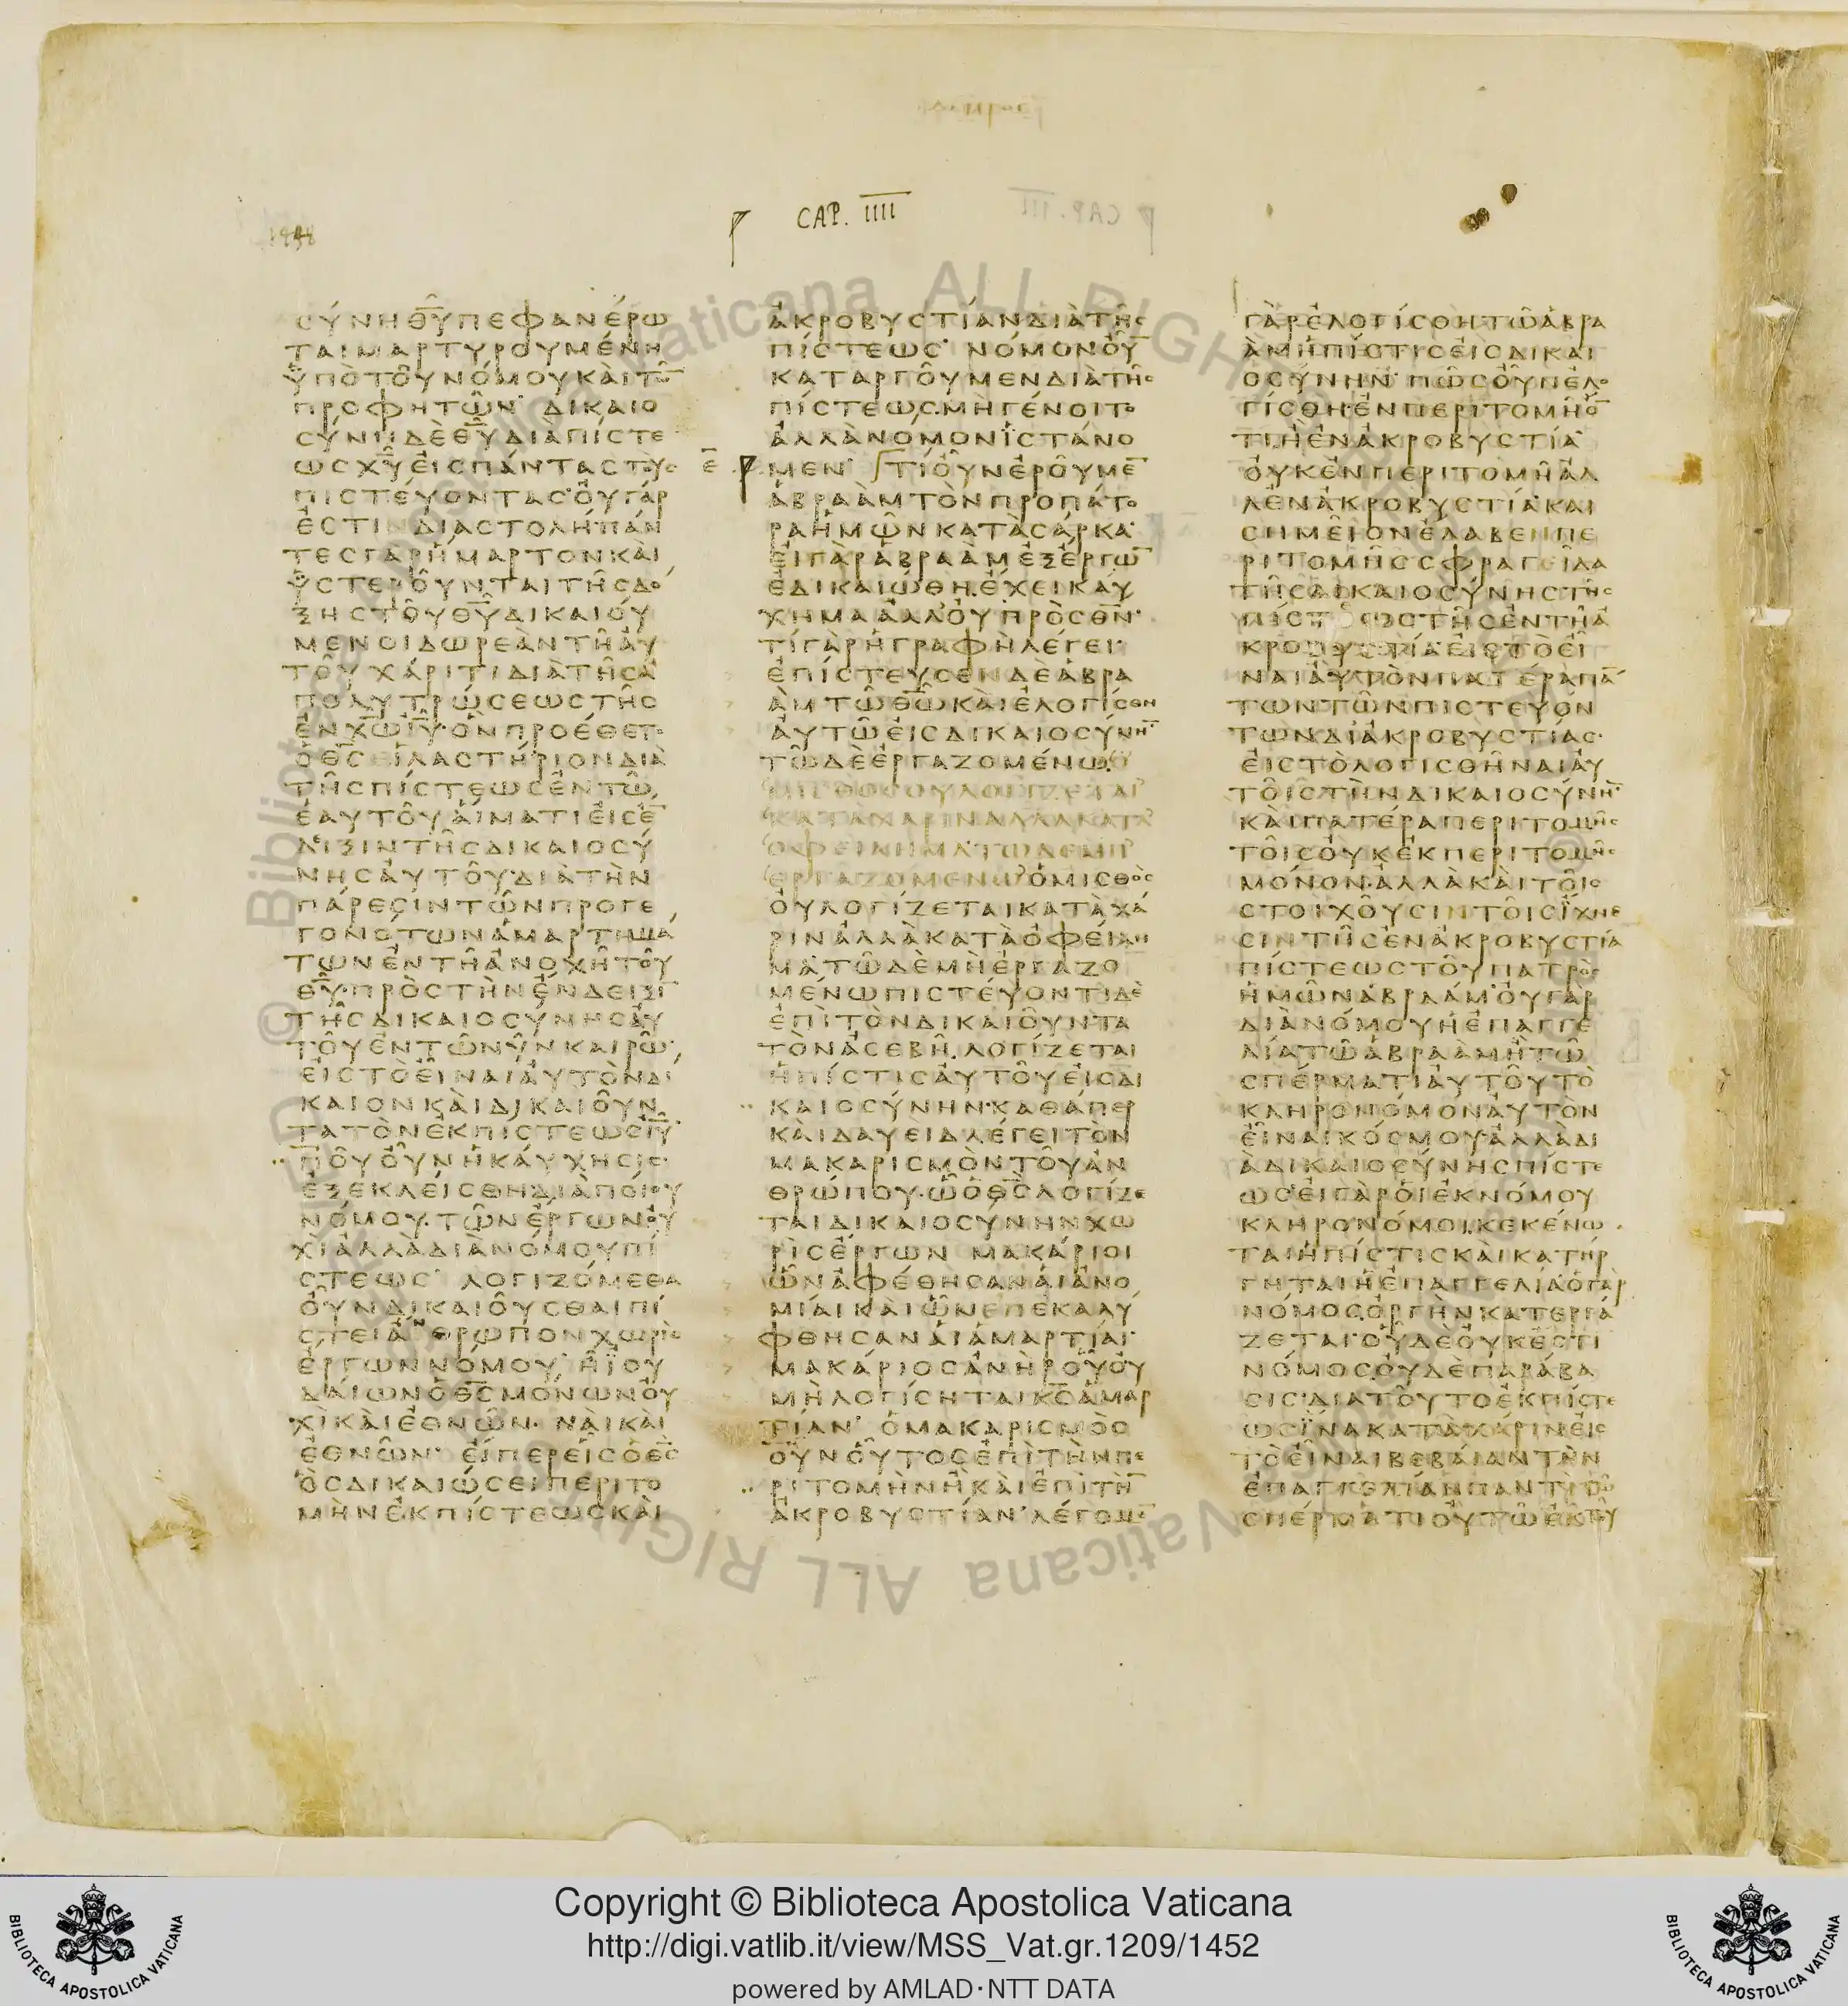 1448
CAP. IIII
ϹΥΝΗ Θ̅Υ̅ ΠΕΦΑΝΕΡΩ
ΤΑΙ ΜΑΡΤΥΡΟΥΜΕΝΗ
ΥΠΟ ΤΟΥ ΝΟΜΟΥ ΚΑΙ ΤΩ̅
ΠΡΟΦΗΤΩΝ· ΔΙΚΑΙΟ
ϹΥΝΗ ΔΕ Θ̅Υ̅ ΔΙΑ ΠΙϹΤΕ
ΩϹ Χ̅Υ̅ ΕΙϹ ΠΑΝΤΑϹ ΤΟΥϹ
ΠΙϹΤΕΥΟΝΤΑϹ· ΟΥ ΓΑΡ
ΕϹΤΙΝ ΔΙΑϹΤΟΛΗ· ΠΑΝ
ΤΕϹ ΓΑΡ ΗΜΑΡΤΟΝ ΚΑΙ
ΥϹΤΕΡΟΥΝΤΑΙ ΤΗϹ ΔΟ
ΞΗϹ ΤΟΥ Θ̅Υ̅ ΔΙΚΑΙΟΥ
ΜΕΝΟΙ ΔΩΡΕΑΝ ΤΗ ΑΥ
ΤΟΥ ΧΑΡΙΤΙ ΔΙΑ ΤΗϹ Α
ΠΟΛΥΤΡΩϹΕΩϹ ΤΗϹ
ΕΝ Χ̅Ω̅ Ι̅Υ̅· ΟΝ ΠΡΟΕΘΕΤΟ
Ο Θ̅Ϲ̅ ΕΙΛΑϹΤΗΡΙΟΝ ΔΙΑ
ΤΗϹ ΠΙϹΤΕΩϹ ΕΝ ΤΩ
ΕΑΥΤΟΥ ΑΙΜΑΤΙ ΕΙϹ Ε̅
ΔΕΙΞΙΝ ΤΗϹ ΔΙΚΑΙΟϹΥ
ΝΗϹ ΑΥΤΟΥ· ΔΙΑ ΤΗΝ
ΠΑΡΕϹΙΝ ΤΩΝ ΠΡΟΓΕ
ΓΟΝΟΤΩΝ ΑΜΑΡΤΗΜΑ
ΤΩΝ ΕΝ ΤΗ ΑΝΟΧΗ ΤΟΥ
Θ̅Υ̅· ΠΡΟϹ ΤΗΝ ΕΝΔΕΙΞΙ̅
ΤΗϹ ΔΙΚΑΙΟϹΥΝΗϹ ΑΥ
ΤΟΥ ΕΝ ΤΩ ΝΥΝ ΚΑΙΡΩ·
ΕΙϹ ΤΟ ΕΙΝΑΙ ΑΥΤΟΝ ΔΙ
ΚΑΙΟΝ ΚΑΙ ΔΙΚΑΙΟΥΝ
ΤΑ ΤΟΝ ΕΚ ΠΙϹΤΕΩϹ Ι̅Υ̅
ΠΟΥ ΟΥΝ Η ΚΑΥΧΗϹΙϹ·
ΕΞΕΚΛΕΙϹΘΗ ΔΙΑ ΠΟΙΟΥ
ΝΟΜΟΥ· ΤΩΝ ΕΡΓΩΝ· ΟΥ
ΧΙ ΑΛΛΑ ΔΙΑ ΝΟΜΟΥ ΠΙ
ϹΤΕΩϹ· ΛΟΓΙΖΟΜΕΘΑ
ΟΥΝ ΔΙΚΑΙΟΥϹΘΑΙ ΠΙ
ϹΤΕΙ ΑΝΘΡΩΠΟΝ ΧΩΡΙϹ
ΕΡΓΩΝ ΝΟΜΟΥ· Η ΪΟΥ
ΔΑΙΩΝ Ο Θ̅Ϲ̅ ΜΟΝΩΝ· ΟΥ
ΧΙ ΚΑΙ ΕΘΝΩΝ· ΝΑΙ ΚΑΙ
ΕΘΝΩΝ· ΕΙΠΕΡ ΕΙϹ Ο Θ̅Ϲ̅
ΟϹ ΔΙΚΑΙΩϹΕΙ ΠΕΡΙΤΟ
ΜΗΝ ΕΚ ΠΙϹΤΕΩϹ ΚΑΙ
ΑΚΡΟΒΥϹΤΙΑΝ ΔΙΑ ΤΗϹ
ΠΙϹΤΕΩϹ· ΝΟΜΟΝ ΟΥ̅
ΚΑΤΑΡΓΟΥΜΕΝ ΔΙΑ ΤΗϹ
ΠΙϹΤΕΩϹ· ΜΗ ΓΕΝΟΙΤΟ
ΑΛΛΑ ΝΟΜΟΝ ΪϹΤΑΝΟ
ΜΕΝ· ΤΙ ΟΥΝ ΕΡΟΥΜΕ̅
ΑΒΡΑΑΜ ΤΟΝ ΠΡΟΠΑΤΟ
ΡΑ ΗΜΩΝ ΚΑΤΑ ϹΑΡΚΑ·
ΕΙ ΓΑΡ ΑΒΡΑΑΜ ΕΞ ΕΡΓΩ̅
ΕΔΙΚΑΙΩΘΗ· ΕΧΕΙ ΚΑΥ
ΧΗΜΑ ΑΛΛ ΟΥ ΠΡΟϹ Θ̅Ν̅·
ΤΙ ΓΑΡ Η ΓΡΑΦΗ ΛΕΓΕΙ·
ΕΠΙϹΤΕΥϹΕΝ ΔΕ ΑΒΡΑ
ΑΜ ΤΩ Θ̅Ω̅ ΚΑΙ ΕΛΟΓΙϹΘΗ
ΑΥΤΩ ΕΙϹ ΔΙΚΑΙΟϹΥΝΗ̅
ΤΩ ΔΕ ΕΡΓΑΖΟΜΕΝΩ Ο
ΜΙϹΘΟϹ ΟΥ ΛΟΓΙΖΕΤΑΙ
ΚΑΤΑ ΧΑΡΙΝ ΑΛΛΑ ΚΑΤΑ
ΟΦΕΙΛΗΜΑ ΤΩ ΔΕ ΜΗ
ΕΡΓΑΖΟΜΕΝΩ Ο ΜΙϹΘΟϹ
ΟΥ ΛΟΓΙΖΕΤΑΙ ΚΑΤΑ ΧΑ
ΡΙΝ ΑΛΛΑ ΚΑΤΑ ΟΦΕΙΛΗ
ΜΑ ΤΩ ΔΕ ΜΗ ΕΡΓΑΖΟ
ΜΕΝΩ ΠΙϹΤΕΥΟΝΤΙ ΔΕ
ΕΠΙ ΤΟΝ ΔΙΚΑΙΟΥΝΤΑ
ΤΟΝ ΑϹΕΒΗ· ΛΟΓΙΖΕΤΑΙ
Η ΠΙϹΤΙϹ ΑΥΤΟΥ ΕΙϹ ΔΙ
ΚΑΙΟϹΥΝΗΝ· ΚΑΘΑΠΕΡ
ΚΑΙ ΔΑΥΕΙΔ ΛΕΓΕΙ ΤΟΝ
ΜΑΚΑΡΙϹΜΟΝ ΤΟΥ ΑΝ
ΘΡΩΠΟΥ· Ω Ο Θ̅Ϲ̅ ΛΟΓΙΖΕ
ΤΑΙ ΔΙΚΑΙΟϹΥΝΗΝ ΧΩ
ΡΙϹ ΕΡΓΩΝ ΜΑΚΑΡΙΟΙ
ΩΝ ΑΦΕΘΗϹΑΝ ΑΙ ΑΝΟ
ΜΙΑΙ ΚΑΙ ΩΝ ΕΠΕΚΑΛΥ
ΦΘΗϹΑΝ ΑΙ ΑΜΑΡΤΙΑΙ·
ΜΑΚΑΡΙΟϹ ΑΝΗΡ ΟΥ ΟΥ
ΜΗ ΛΟΓΙϹΗΤΑΙ Κ̅Ϲ̅ ΑΜΑΡ
ΤΙΑΝ· Ο ΜΑΚΑΡΙϹΜΟϹ
ΟΥΝ ΟΥΤΟϹ ΕΠΙ ΤΗΝ ΠΕ
ΡΙΤΟΜΗΝ Η ΚΑΙ ΕΠΙ ΤΗ̅
ΑΚΡΟΒΥϹΤΙΑΝ· ΛΕΓΟΜΕ̅
ΓΑΡ ΕΛΟΓΙϹΘΗ ΤΩ ΑΒΡΑ
ΑΜ Η ΠΙϹΤΙϹ ΕΙϹ ΔΙΚΑΙ
ΟϹΥΝΗΝ· ΠΩϹ ΟΥΝ ΕΛΟ
ΓΙϹΘΗ· ΕΝ ΠΕΡΙΤΟΜΗ Ο̅
ΤΙ Η ΕΝ ΑΚΡΟΒΥϹΤΙΑ
ΟΥΚ ΕΝ ΠΕΡΙΤΟΜΗ ΑΛ
Λ ΕΝ ΑΚΡΟΒΥϹΤΙΑ· ΚΑΙ
ϹΗΜΕΙΟΝ ΕΛΑΒΕΝ ΠΕ
ΡΙΤΟΜΗϹ ϹΦΡΑΓΕΙΔΑ
ΤΗϹ ΔΙΚΑΙΟϹΥΝΗϹ ΤΗϹ
ΠΙϹΤΕΩϹ ΤΗϹ ΕΝ ΤΗ Α
ΚΡΟΒΥϹΤΙΑ· ΕΙϹ ΤΟ ΕΙ
ΝΑΙ ΑΥΤΟΝ ΠΑΤΕΡΑ ΠΑ̅
ΤΩΝ ΤΩΝ ΠΙϹΤΕΥΟΝ
ΤΩΝ ΔΙ ΑΚΡΟΒΥϹΤΙΑϹ·
ΕΙϹ ΤΟ ΛΟΓΙϹΘΗΝΑΙ ΑΥ
ΤΟΙϹ ΤΗΝ ΔΙΚΑΙΟϹΥΝΗ̅
ΚΑΙ ΠΑΤΕΡΑ ΠΕΡΙΤΟΜΗϹ
ΤΟΙϹ ΟΥΚ ΕΚ ΠΕΡΙΤΟΜΗϹ
ΜΟΝΟΝ· ΑΛΛΑ ΚΑΙ ΤΟΙϹ
ϹΤΟΙΧΟΥϹΙΝ ΤΟΙϹ ΙΧΝΕ
ϹΙΝ ΤΗϹ ΕΝ ΑΚΡΟΒΥϹΤΙΑ
ΠΙϹΤΕΩϹ ΤΟΥ ΠΑΤΡΟϹ
ΗΜΩΝ ΑΒΡΑΑΜ· ΟΥ ΓΑΡ
ΔΙΑ ΝΟΜΟΥ Η ΕΠΑΓΓΕ
ΛΙΑ ΤΩ ΑΒΡΑΑΜ Η ΤΩ
ϹΠΕΡΜΑΤΙ ΑΥΤΟΥ ΤΟ
ΚΛΗΡΟΝΟΜΟΝ ΑΥΤΟΝ
ΕΙΝΑΙ ΚΟϹΜΟΥ· ΑΛΛΑ ΔΙ
Α ΔΙΚΑΙΟϹΥΝΗϹ ΠΙϹΤΕ
ΩϹ· ΕΙ ΓΑΡ ΟΙ ΕΚ ΝΟΜΟΥ
ΚΛΗΡΟΝΟΜΟΙ· ΚΕΚΕΝΩ
ΤΑΙ Η ΠΙϹΤΙϹ ΚΑΙ ΚΑΤΗΡ
ΓΗΤΑΙ Η ΕΠΑΓΓΕΛΙΑ· Ο ΓΑΡ
ΝΟΜΟϹ ΟΡΓΗΝ ΚΑΤΕΡΓΑ
ΖΕΤΑΙ· ΟΥ ΔΕ ΟΥΚ ΕϹΤΙ
ΝΟΜΟϹ ΟΥΔΕ ΠΑΡΑΒΑ
ϹΙϹ· ΔΙΑ ΤΟΥΤΟ ΕΚ ΠΙϹΤΕ
ΩϹ ΪΝΑ ΚΑΤΑ ΧΑΡΙΝ ΕΙϹ
ΤΟ ΕΙΝΑΙ ΒΕΒΑΙΑΝ ΤΗΝ
ΕΠΑΓΓΕΛΙΑΝ ΠΑΝΤΙ ΤΩ
ϹΠΕΡΜΑΤΙ ΟΥ ΤΩ ΕΚ ΤΟΥ
Copyright © Biblioteca Apostolica Vaticana
http://digi.vatlib.it/view/MSS_Vat.gr.1209/1452
powered by AMLAD·NTT DATA
BIBLIOTECA APOSTOLICA VATICANA
BIBLIOTECA APOSTOLICA VATICANA